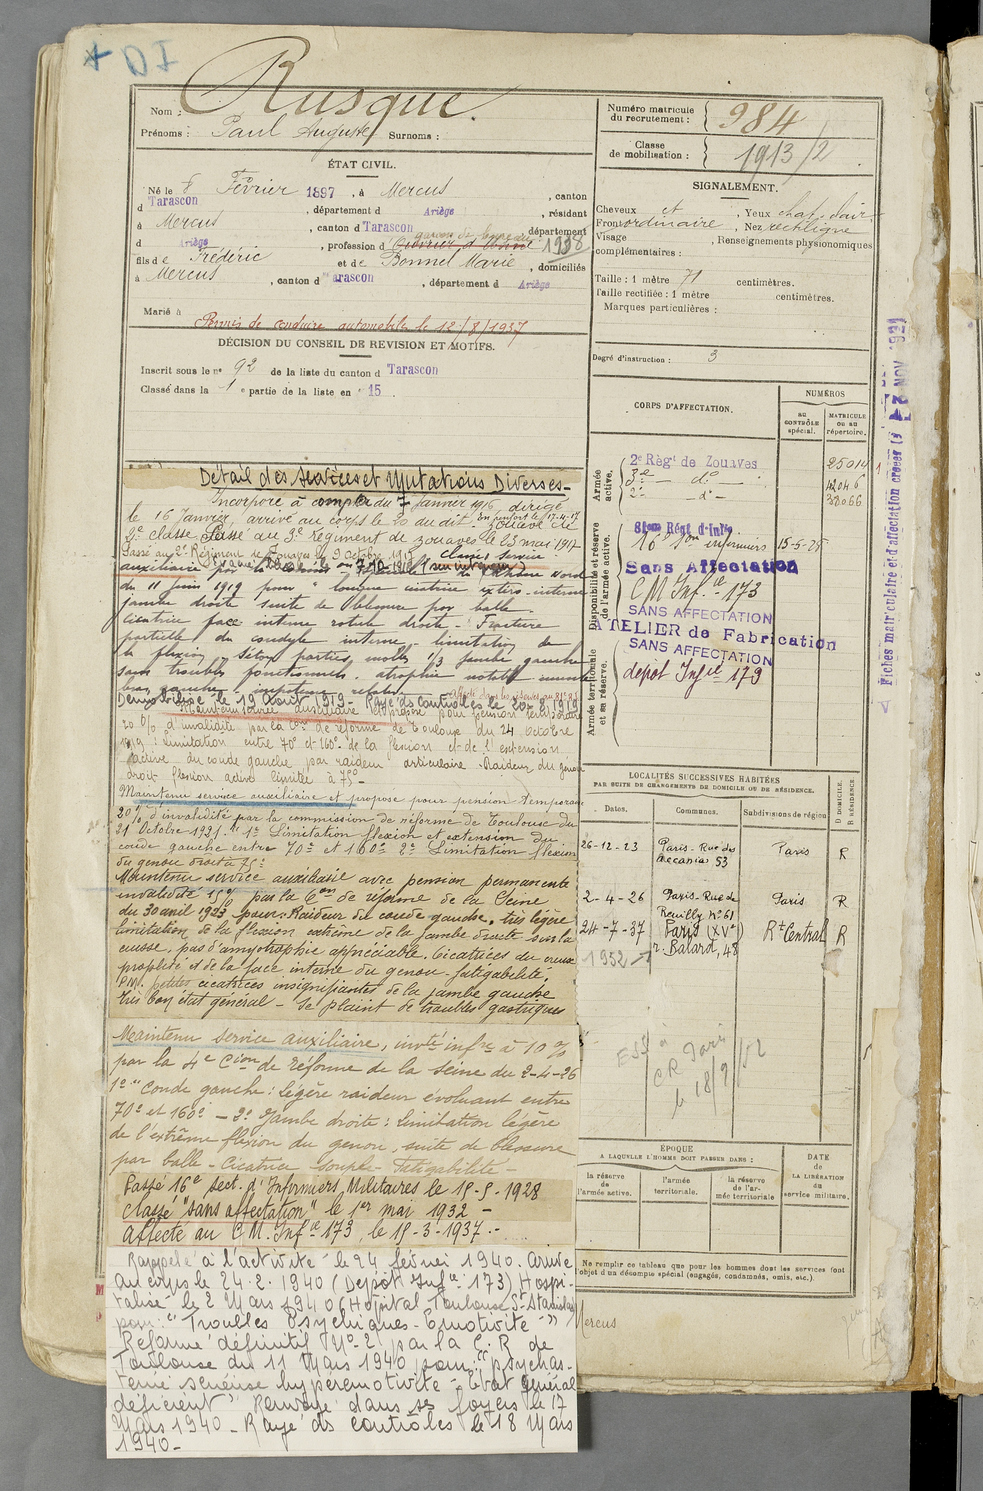 Rusque.
Nom :
Prénoms : Paul Auguste Surnoms :
Numéro matricule du recrutement : 984
Classe de mobilisation : 1913/2
ÉTAT CIVIL.
Né le 8 Février 1897, à Mercus, canton
d Tarascon, département d Ariège, résidant
à Mercus, canton d Tarascon, département
d Ariège, profession d' 1938
fils de Frédéric et de Bonnel Marie, domiciliés
à Mercus, canton d Tarascon, département d Ariège
Marié à
Permis de conduire automobiles le 12/8/1937
DÉCISION DU CONSEIL DE REVISION ET MOTIFS.
Inscrit sous le n° 92 de la liste du canton d Tarascon
Classé dans la 1e partie de la liste en 15
SIGNALEMENT.
Cheveux , Yeux
Front ordinaire, Nez rectiligne
Visage , Renseignements physionomiques
complémentaires :
Taille : 1 mètre 71 centimètres.
Taille rectifiée : 1 mètre centimètres.
Marques particulières :
Degré d'instruction : 3
CORPS D'AFFECTATION.
NUMÉROS
au CONTRÔLE spécial.
MATRICULE ou au répertoire.
Armée active.
2e Régt de Zouaves 25014
3e — do —
2e — do — 38066
Disponibilité et réserve de l'armée active.
81ème Régt d'Infie
16e son infirmiers 15-5-28
Sans Affectation
C M Inf.ie 173
SANS AFFECTATION
ATELIER de Fabrication
SANS AFFECTATION
Armée territoriale et sa réserve.
depot Infie 173
Fiches matriculaire et d'affectation créées
Détail des Services et Mutations Diverses-
Incorporé à compter du 7 Janvier 1916, dirigé
le 16 Janvier, arrivé au corps le 20 du dit. Zouave de
2e classe. Passé au 3e régiment de zouaves le 23 mai 1917
Passé au 2e Régiment de Zouaves le 9 octobre 1917
Classé service
auxiliaire
du 11 Juin 1919 pour " longue cicatrice externe
jambe droite suite de blessure par balle.
Cicatrice face interne rotule droite. Fracture
partielle du condyle interne, limitation de
la flexion, séton parties molles 1/3 jambe gauche
sans troubles fonctionnels. atrophie notable
bras gauche, impotence relative
Démobilisé le 19 Août 1919- Rayé des Contrôles le 20-8-1919
Maintenu service auxiliaire et proposé pour pension temporaire
20 % d'invalidité par la Con de réforme de Toulouse du 24 Octobre
1919 : limitation entre 70° et 160° de la flexion et de l'extension
active du coude gauche par raideur articulaire. Raideur du genou
droit flexion active limitée à 75° -
Maintenu service auxiliaire et proposé pour pension temporaire
20 % d'invalidité par la commission de réforme de Toulouse du
21 Octobre 1921. "1° Limitation flexion et extension du
coude gauche entre 70° et 160° 2° Limitation flexion
du genou droit à 75°
Maintenu service auxiliaire avec pension permanente
invalidité 15 % par la Con de réforme de la Seine
du 30 avril 1923 pour : Raideur du coude gauche, très légère
limitation de la flexion extrême de la jambe droite sur la
cuisse, pas d'amyotrophie appréciable. Cicatrices du creux
poplité et de la face interne du genou - fatigabilité,
P.M. petites cicatrices insignifiantes de la jambe gauche
très bon état général - Se plaint de troubles gastriques
Maintenu service auxiliaire, invté infre à 10 %
par la 4e Cion de réforme de la Seine du 2-4-26
1° "Coude gauche : légère raideur évoluant entre
70° et 160° - 2° Jambe droite : limitation légère
de l'extrême flexion du genou, suite de blessure
par balle - Cicatrice souple - fatigabilité -
Passé 16e sect. d'Infirmiers Militaires le 15-5-1928
Classé "sans affectation" le 1er mai 1932 -
Affecté au C.M. Infie 173, le 15-3-1937.-
Rappelé à l'activité le 24 février 1940. Arrivé
au corps le 24.2.1940 (Dépôt Infie 173) Hospi-
talisé le 2 Mars 1940 (Hôpital Toulouse St Stanislas)
pour : "Troubles Psychiques - Emotivité - "
Réformé définitif No 2 par la C.R de
Toulouse du 11 Mars 1940 pour : " psychas-
ténie sérieuse hyperémotivité - Etat général
déficient". Renvoyé dans ses foyers le 17
Mars 1940 - Rayé des contrôles le 18 Mars
1940-
LOCALITÉS SUCCESSIVES HABITÉES
PAR SUITE DE CHANGEMENTS DE DOMICILE OU DE RÉSIDENCE.
Dates. Communes. Subdivisions de région D DOMICILE. R RÉSIDENCE
26-12-23 Paris - Rue des 53 Paris R
2-4-26 Paris - Rue de Reuilly No 61 Paris R
24-7-37 Paris (XVe) r. Balard, 48 Rt Central R
1952
CR Paris
le 18/9/52
ÉPOQUE
A LAQUELLE L'HOMME DOIT PASSER DANS :
la réserve de l'armée active.
l'armée territoriale.
la réserve de l'armée territoriale
DATE de LA LIBÉRATION du service militaire.
Ne remplir ce tableau que pour les hommes dont les services font
l'objet d'un décompte spécial (engagés, condamnés, omis, etc.)
Mercus